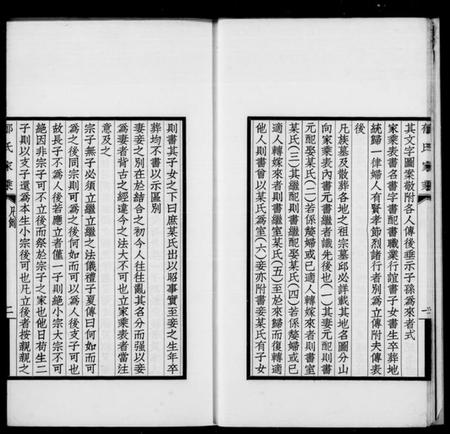 其文字圖案敬附各人傳後垂示子孫爲來者式
家乘表書名書字書配書職業行誼書子女書生卒葬地
統歸一律婦人有賢孝節烈諸行者別爲立傳附夫傳表
後
凡族墓及散葬各地之祖宗墓邱必詳載其地名圖分山
向家乘表內書元書繼書者識先後也(一)其妻元配則書
元配某氏(二)若係嫠婦或已適人轉嫁來者則書室
某氏(三)其繼配則書繼配娶某氏(四)若係嫠婦或已
適人轉嫁來者則書繼室某氏(五)至於來歸而復轉適
他人則書曾以某氏爲室(六)妾亦附書妾某氏有子女
則書其子女之下曰庶某氏出以昭事實至妾之生年卒
葬均不書以示區別
妻妾之別在於結合之初今人往往亂其名分而强以妾
爲妻者背古之經違今之法大不可也立家乘表者當注
意及之
宗子無子必須立繼立繼之法儀禮子夏傳曰何如而可
爲之後同宗則可爲之後何如而可以爲人後支子可也
故長子不爲人後若應立者僅一子則絕小宗大宗不可
絕因非宗子可不立後而祭於宗子之家也他日苟生二
子則以支子還爲本生小宗後可也凡立後者按親親之
氏家乘 凡例 二